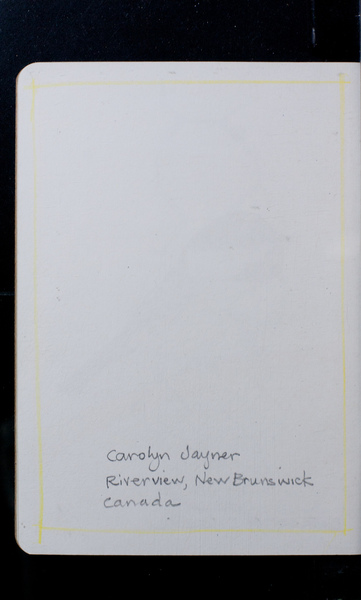 Carolyn Jayner
Riverview, New Brunswick
Canada